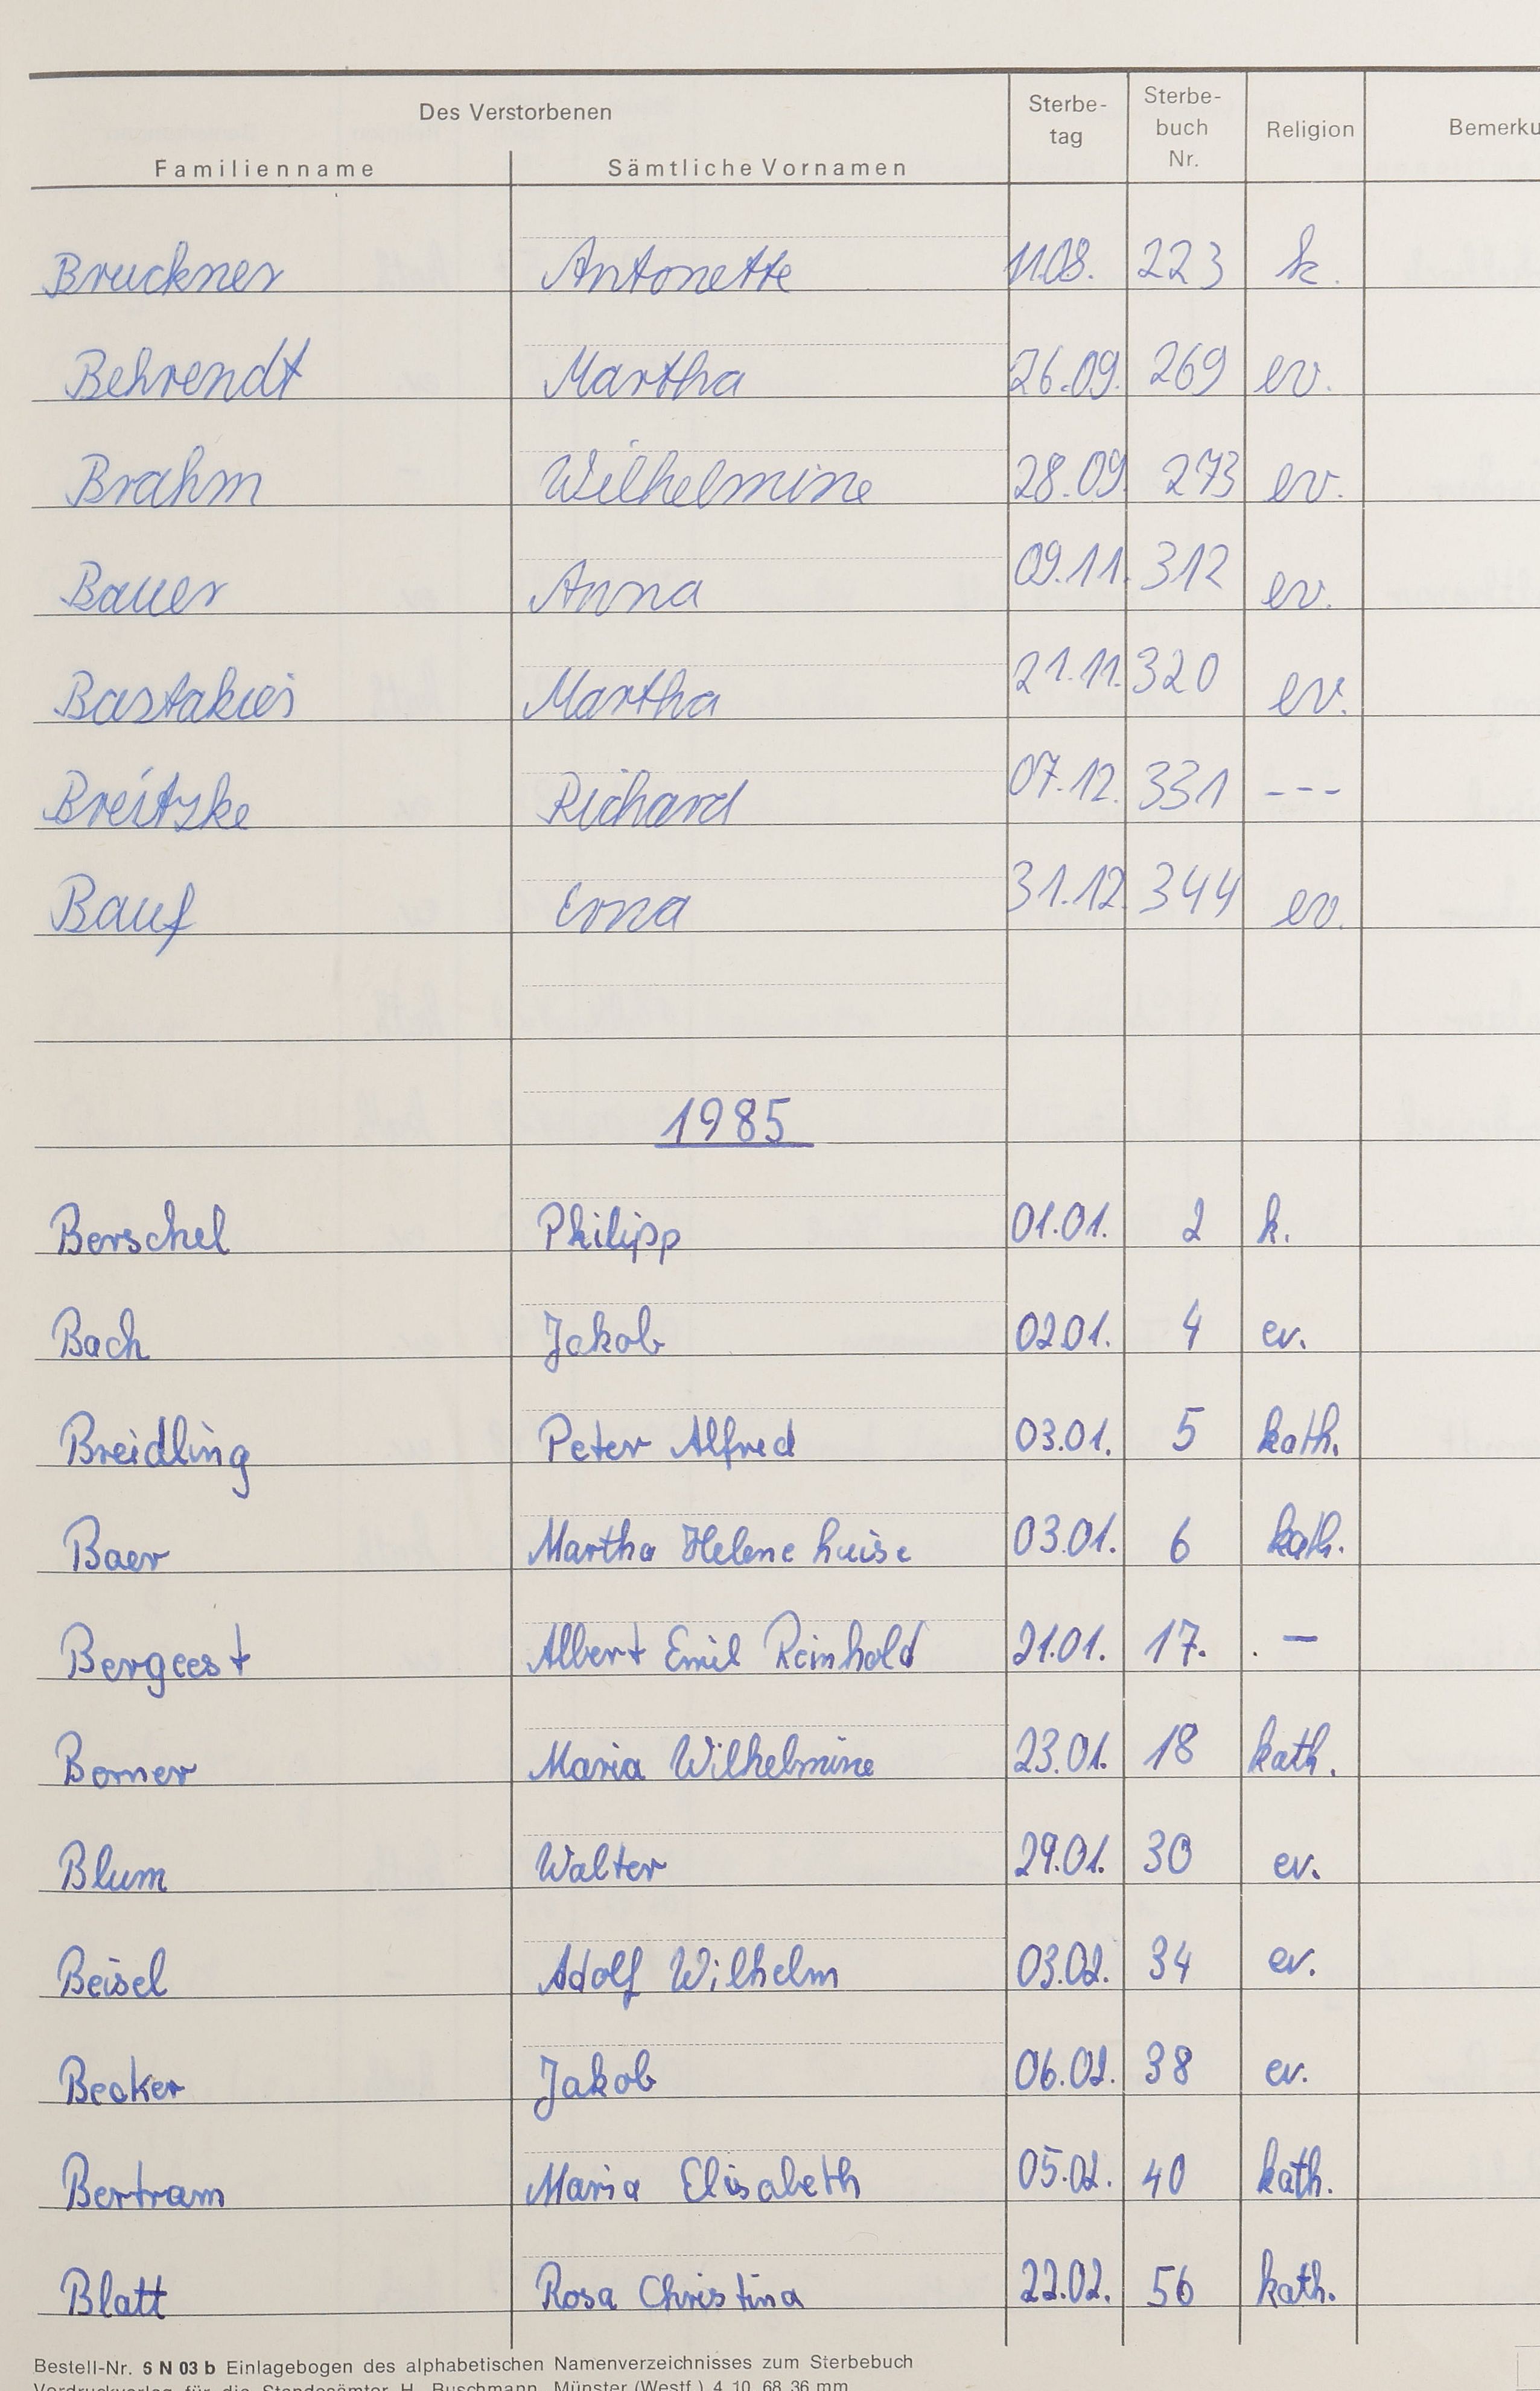 Des Verstorbenen
Familienname Sämtliche Vornamen Sterbe-tag Sterbe-buch Nr. Religion Bemerku
Bruckner Antonette 11.08. 223 k.
Behrendt Martha 26.09. 269 ev.
Brahm Wilhelmine 28.09. 273 ev.
Bauer Anna 09.11. 312 ev.
Martha 21.11. 320 ev.
Breitzke Richard 07.12. 331 ---
Bauf Erna 31.12. 344 ev.
1985
Berschel Philipp 01.01. 2 k.
Bach Jakob 02.01. 4 ev.
Breidling Peter Alfred 03.01. 5 kath.
Baer Martha Helene Luise 03.01. 6 kath.
Bergeest Albert Emil Reinhold 21.01. 17. . —
Borner Maria Wilhelmine 23.01. 18 kath.
Blum Walter 29.01. 30 ev.
Beisel Adolf Wilhelm 03.02. 34 ev.
Becker Jakob 06.02. 38 ev.
Bertram Maria Elisabeth 05.02. 40 kath.
Blatt Rosa Christina 22.02. 56 kath.
Bestell-Nr. 6 N 03 b Einlagebogen des alphabetischen Namenverzeichnisses zum Sterbebuch
Vordruckverlag für die Standesämter H. Buschmann, Münster (Westf.) 4 10 68 36 mm